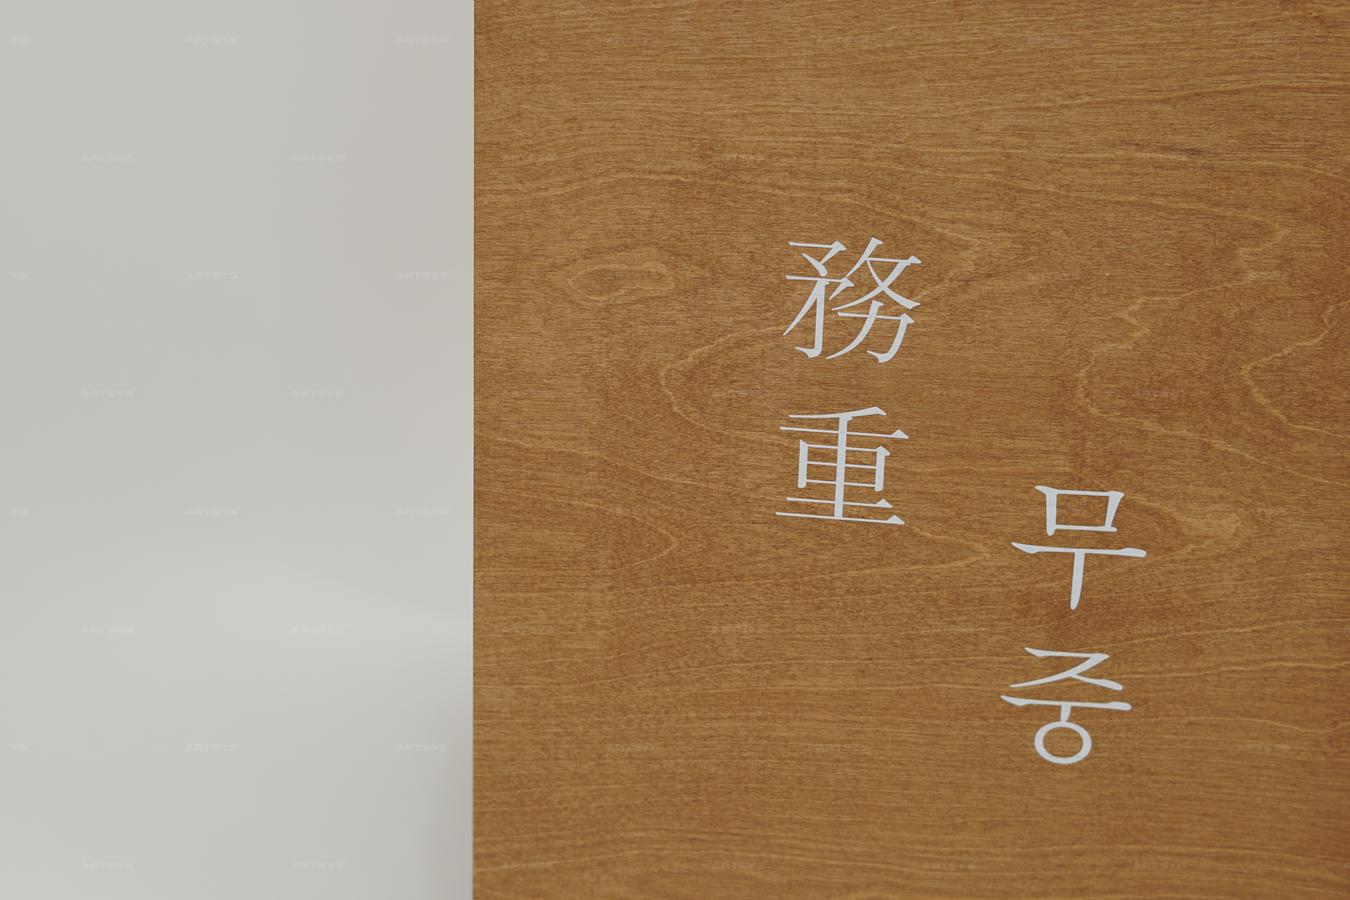 務重
무중
ARTSYS